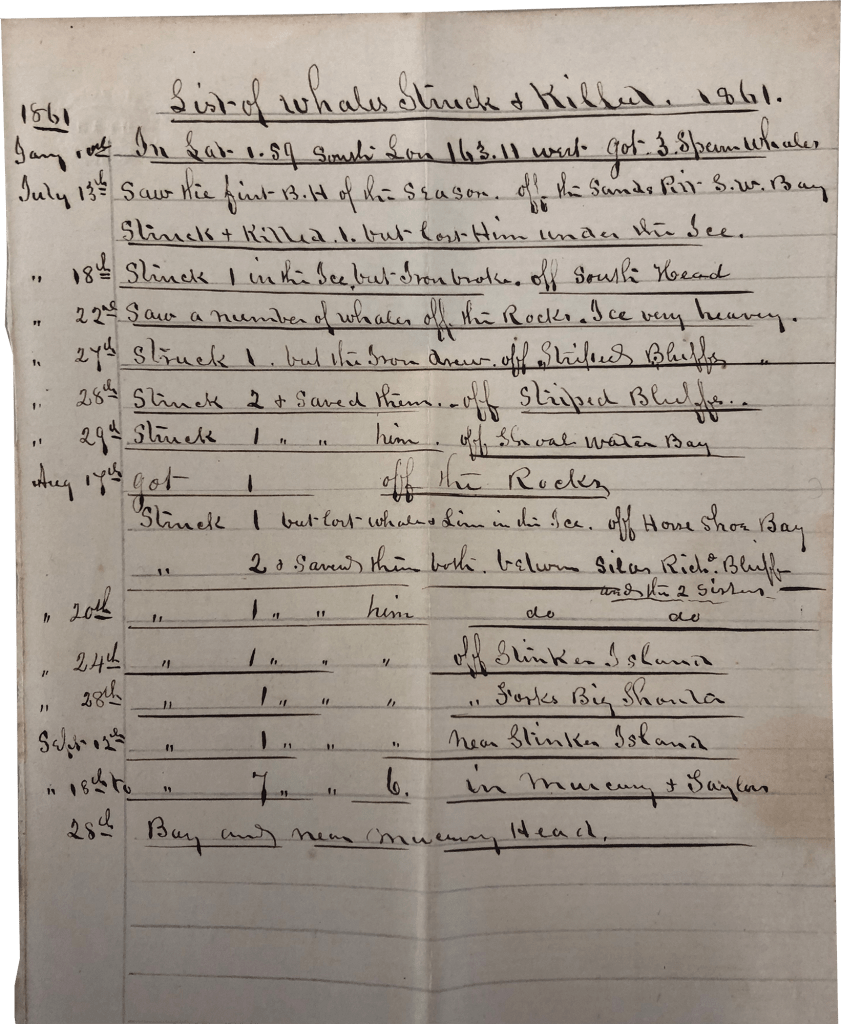 List of Whales Struck & Killed. 1861.
1861
Jany In Lat 1.59 South Lon 163.11 west got 3 Sperm Whales
July 13th Saw the first B.H of the Season. off the Sands S.W. Bay
Struck & Killed 1. but lost Him under the Ice.
" 18th Struck 1 in the Ice, but Iron broke. off South Head
" 22nd Saw a number of whales off the Rocks. Ice very heavey.
" 27th Struck 1. but the Iron drew. off Striped Bluffs "
" 28th Struck 2 & Saved them. off Striped Bluffs..
" 29th Struck 1 " " him. off Shoal Water Bay
Aug 17th got 1 off the Rocks
Struck 1 but lost whale & Line in the Ice. off Horse Shoe Bay
" 2 & Saved them both. between Silas Richds. Bluff
and the 2 Sisters
" 20th " 1 " " him do do
" 24th " 1 " " " off Stinker Island
" 28th " 1 " " " " Forks Big
Sept 12th " 1 " " " near Stinker Island
" 18th to " 7 " " 6. in Mercury & Taylor
28th Bay and near Mercury Head.